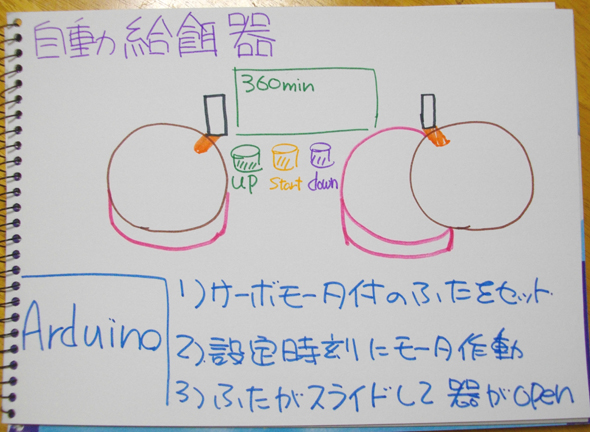 自動給餌器
360min
up start down
Arduino
1)サーボモータ付のふたをセット
2)設定時刻にモータ作動
3)ふたがスライドして器がopen